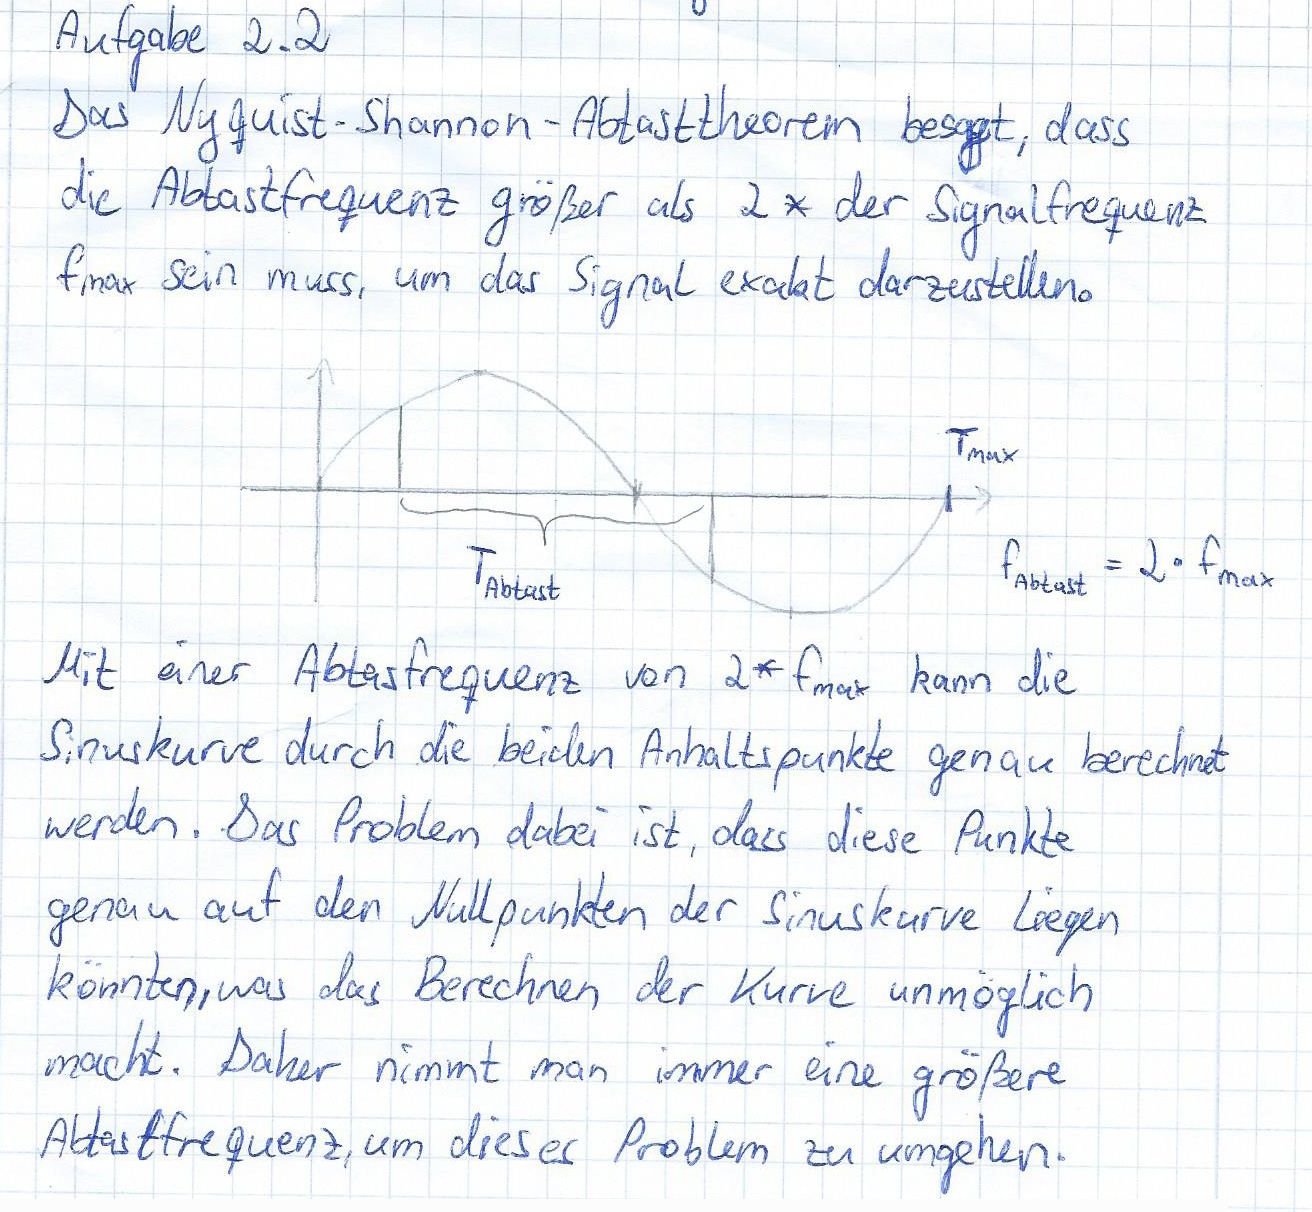 Aufgabe 2.2
Das Nyquist-Shannon-Abtasttheorem besagt, dass
die Abtastfrequenz größer als 2 * der Signalfrequenz
fmax sein muss, um das Signal exakt darzustellen.
Tmax
TAbtast
fAbtast = 2 · fmax
Mit einer Abtasfrequenz von 2* fmax kann die
Sinuskurve durch die beiden Anhaltspunkte genau berechnet
werden. Das Problem dabei ist, dass diese Punkte
genau auf den Nullpunkten der Sinuskurve liegen
könnten, was das Berechnen der Kurve unmöglich
macht. Daher nimmt man immer eine größere
Abtastfrequenz, um dieses Problem zu umgehen.